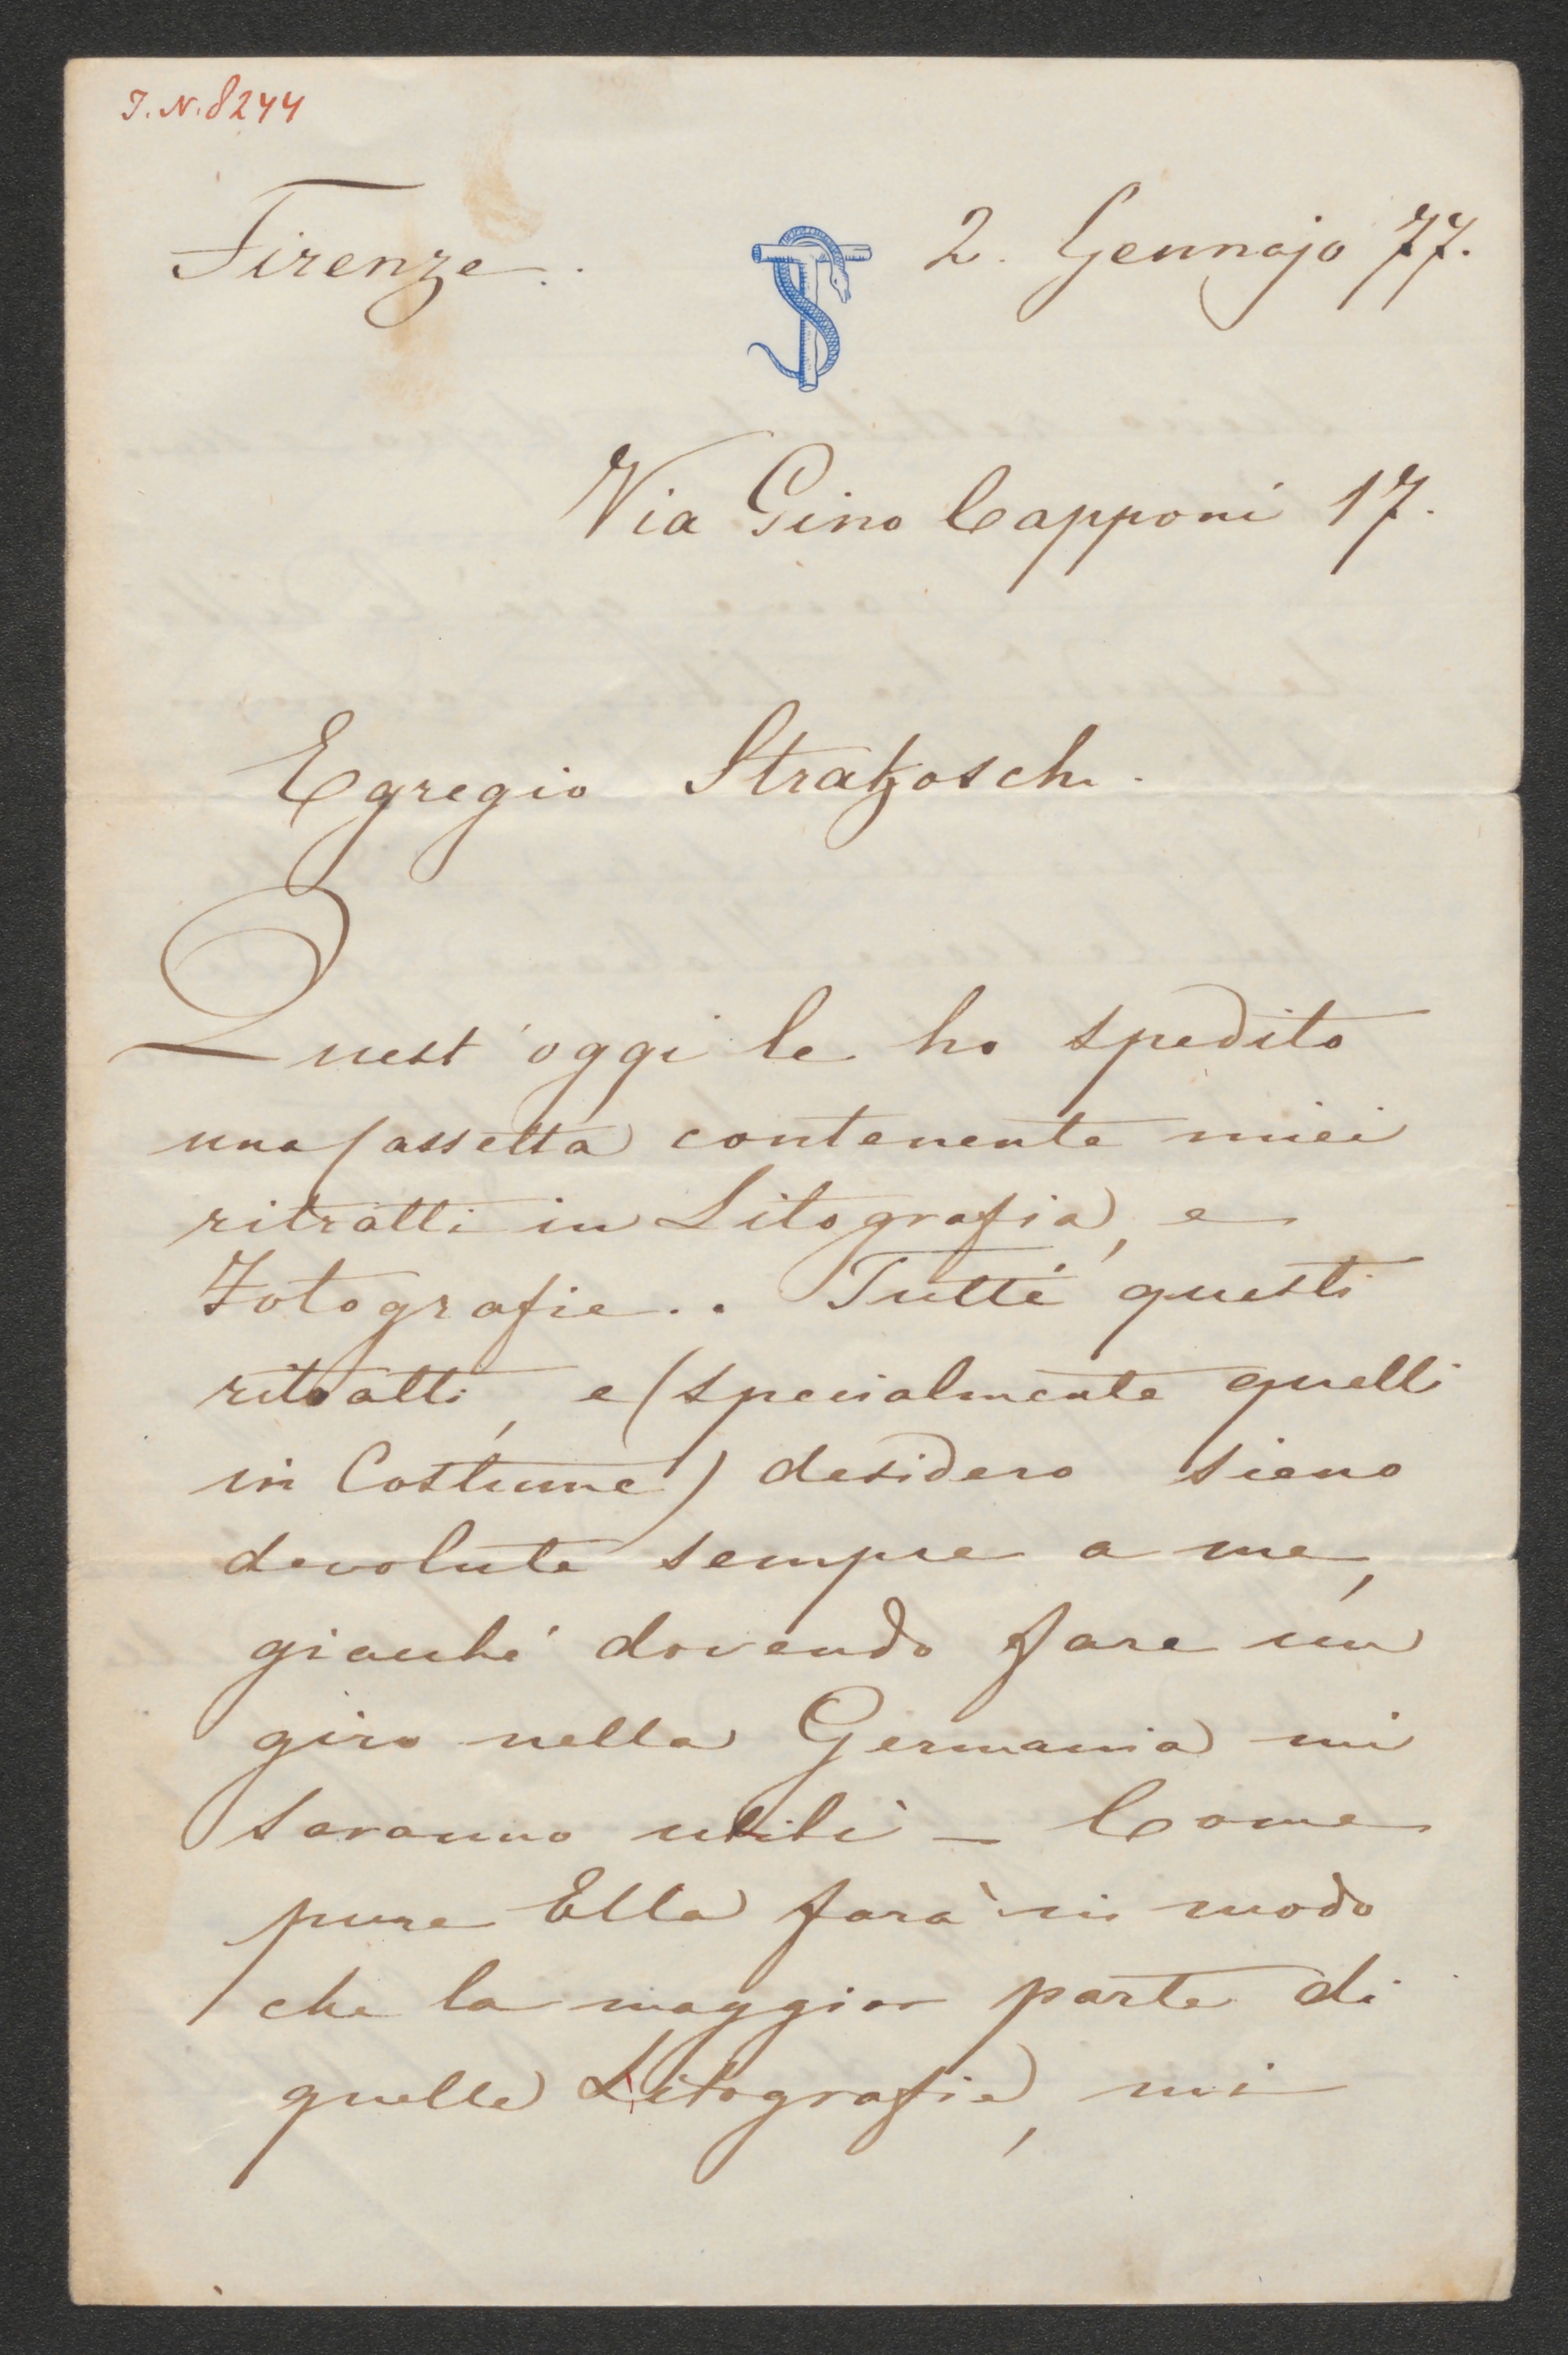 I. N. 8244
Firenze. 2. Gennajo 77.
TS
Via Gino Capponi 17.
Egregio Stratzosch.
Quest'oggi le ho spedito
una Cassetta contenente miei
ritratti in Litografia, e
Fotografie.. Tutti questi
ritratti, e (specialmente quelli
in Costume) desidero sieno
devolute sempre a me,
giacché dovendo fare un
giro nella Germania mi
saranno utili – Come
pure Ella farà in modo
che la maggior parte di
quelle Litografie, mi